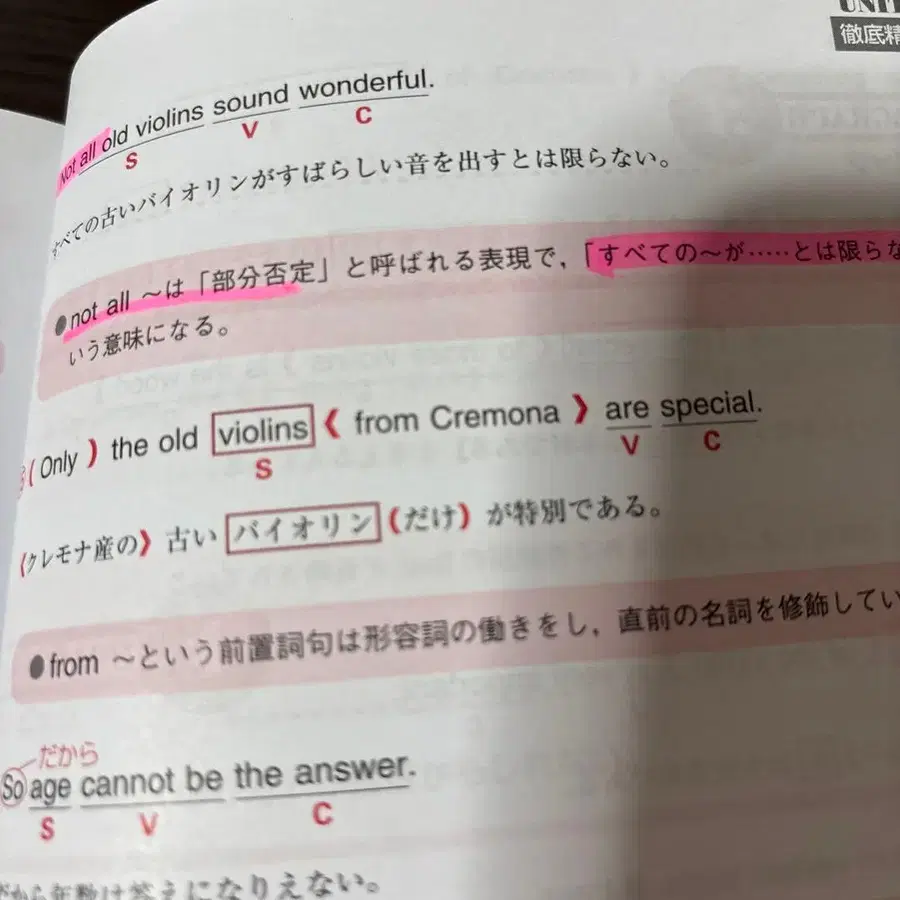 UNIT
徹底精
Not all old violins sound wonderful.
S V C
すべての古いバイオリンがすばらしい音を出すとは限らない。
●not all ～は「部分否定」と呼ばれる表現で,「すべての～が……とは限らな
いう意味になる。
(Only) the old violins 《 from Cremona 》 are special.
S V C
《クレモナ産の》古いバイオリン(だけ)が特別である。
●from ～という前置詞句は形容詞の働きをし,直前の名詞を修飾してい
だから
So age cannot be the answer.
S V C
だから年数は答えになりえない。